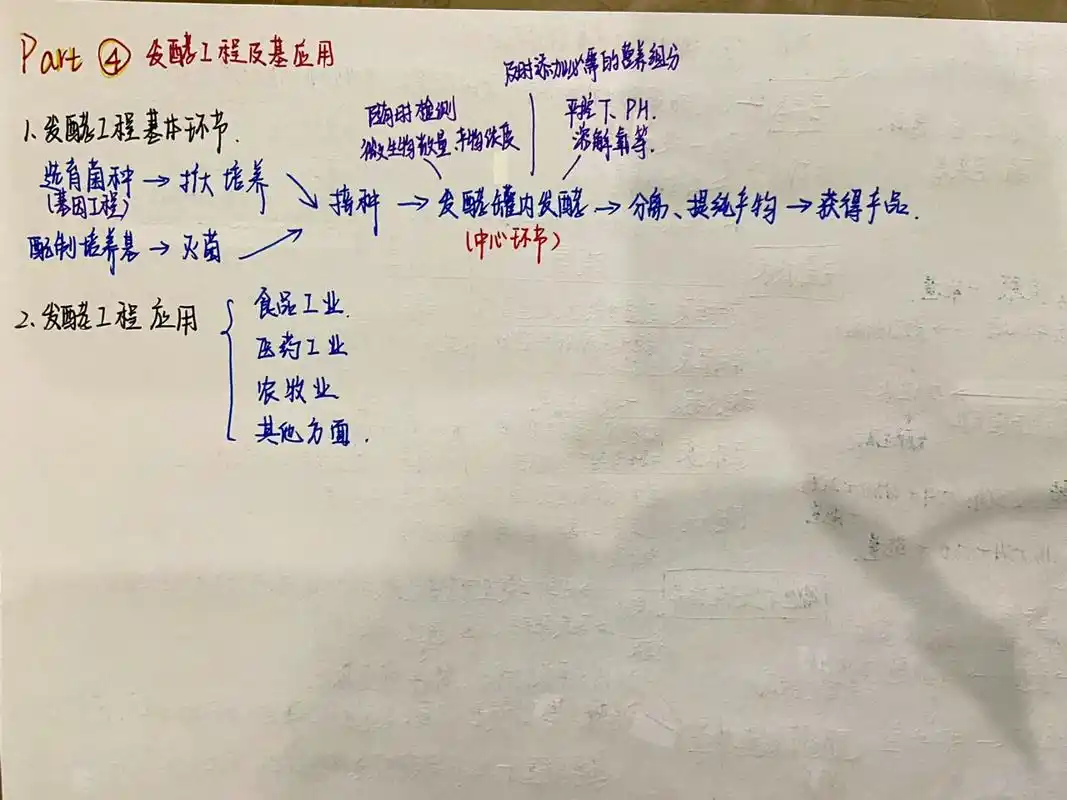 Part ④ 发酵工程及其应用
1. 发酵工程基本环节.
及时添加必需的营养组分
随时检测
微生物数量、产物浓度
严控 T、PH.
溶解氧等.
选育菌种 → 扩大培养
(基因工程)
接种 → 发酵罐内发酵 → 分离、提纯产物 → 获得产品.
(中心环节)
配制培养基 → 灭菌
2. 发酵工程应用
食品工业.
医药工业
农牧业
其他方面.